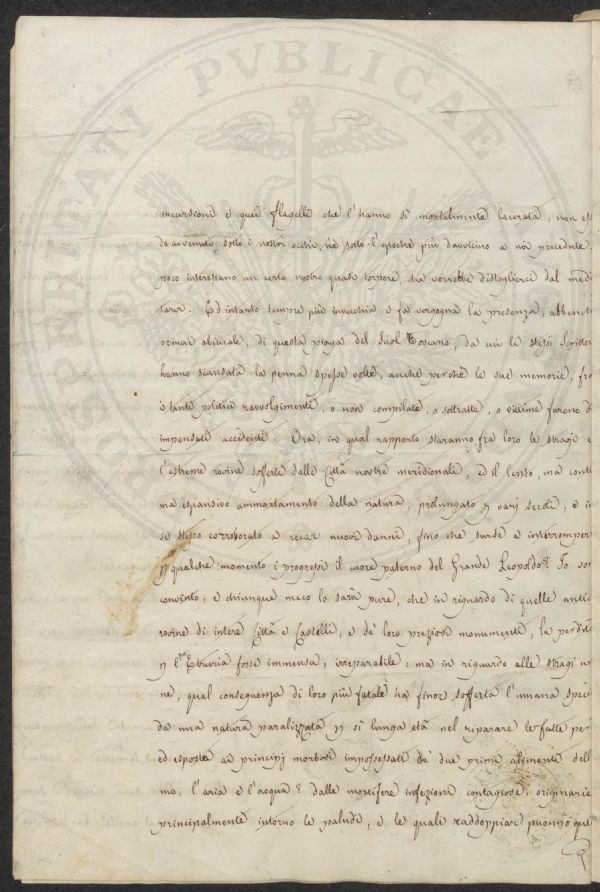 incursioni e quei flagelli che l'hanno sì mortalmente lacerata, non es
do avvenuti sotto i nostri occhi, nè sotto l'epoche più davvicino a noi precedente,
poco interessano un certo nostro quasi torpore, che vorrebbe distoglierci dal medi
tare. Ed intanto sempre più invecchia e fa vergogna la presenza, abben
ormai abituale, di questa piaga del Suol Toscano, da cui le stessi Scrittor
hanno scansata la penna spesse volte, anche perchè le sue memorie, fro
i tanti politici ravvolgimenti, o non compilate, o sottratte, o vittime furono d
impensati accidenti. Ora, in qual rapporto staranno fra loro le stragi e
l'estreme rovine sofferte dalle Città nostre meridionali, ed il lento, ma conti
ma espansivo ammortamento della natura, prolungato p varj secoli, e i
se stesso corroborato a recar nuovi danni, fino che surse a interromper
p qualche momento i progressi il cuore paterno del Grande Leopoldo? Io son
convinto, e chiunque meco lo sarà pure, che in riguardo di quelle antic
rovine di intere Città e Castelli, e de' loro preziosi monumenti, la perdita
p l'Etruria fosse immensa, irreparabile: ma in riguardo alle stragi u
ne, qual conseguenza di loro più fatale ha finor sofferta l'umana speci
da una natura paralizzata p sì lunga età nel riparare le fatte per
ed esposta ai principj morbosi impossessati de' due primi alimenti dell
mo, l'aria e l'acqua? dalle mortifere infezioni contagiose, originarie
principalmente intorno le paludi, e le quali raddoppiar puonno que
PVBLICAE